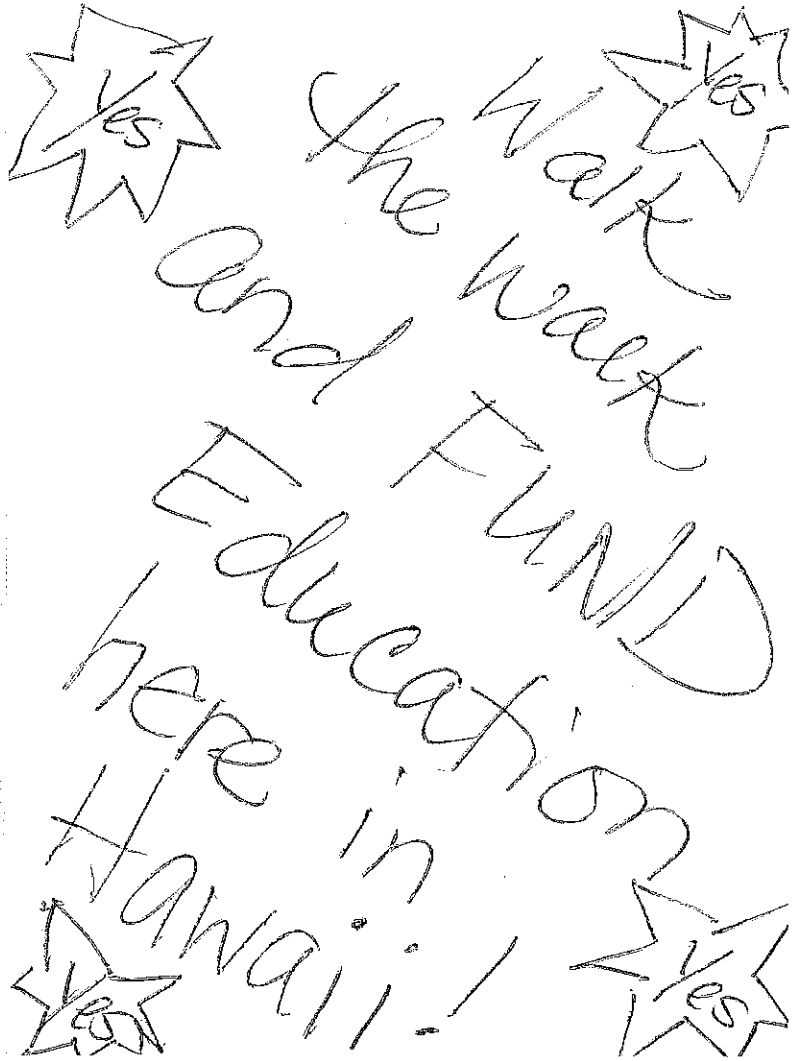 Yes
Yes
Walk
the walk
and FUND
Education
here in
Hawaii!
Yes
Yes